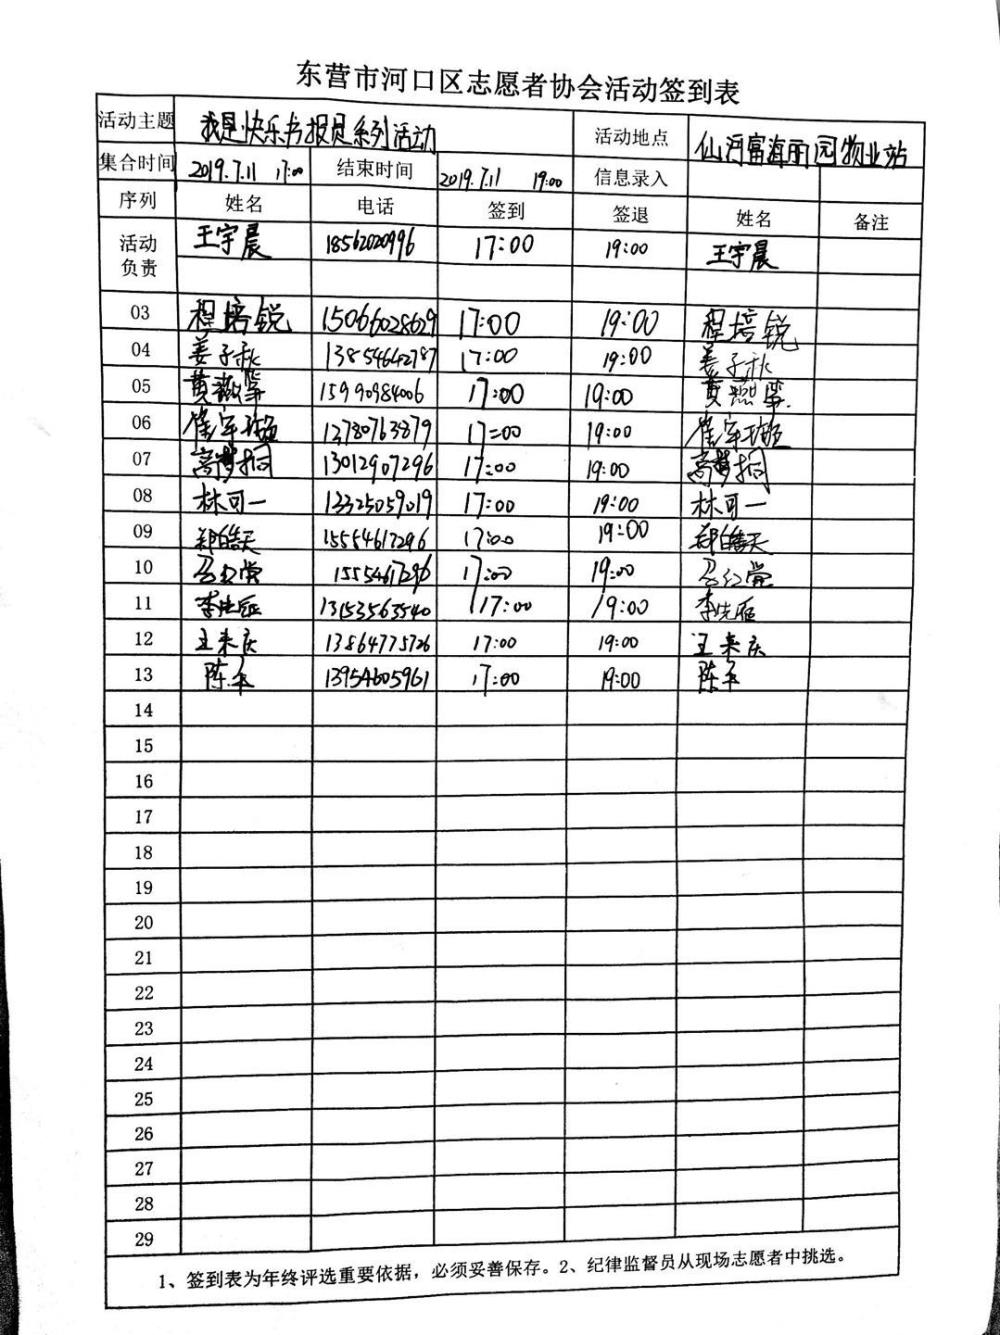 东营市河口区志愿者协会活动签到表
活动主题 我是快乐书报员系列活动 活动地点 仙河富海丽园物业站
集合时间 2019.7.11 17:00 结束时间 2019.7.11 19:00 信息录入
序列 姓名 电话 签到 签退 姓名 备注
活动负责 王宇晨 18562020996 17:00 19:00 王宇晨
03 程培锐 15066028629 17:00 19:00 程培锐
04 姜子秋 138546602787 17:00 19:00 姜子秋
05 黄 15990984006 17:00 19:00 黄
06 崔 13780763879 17:00 19:00 崔
07 高梦桐 13012907296 17:00 19:00 高梦桐
08 林可一 13325059019 17:00 19:00 林可一
09 郑皓天 15554617296 17:00 19:00 郑皓天
10 15554617296 17:00 19:00
11 李 13153563540 17:00 19:00 李
12 王来庆 13864775726 17:00 19:00 王来庆
13 陈平 13954605961 17:00 19:00 陈平
14
15
16
17
18
19
20
21
22
23
24
25
26
27
28
29
1、签到表为年终评选重要依据，必须妥善保存。2、纪律监督员从现场志愿者中挑选。